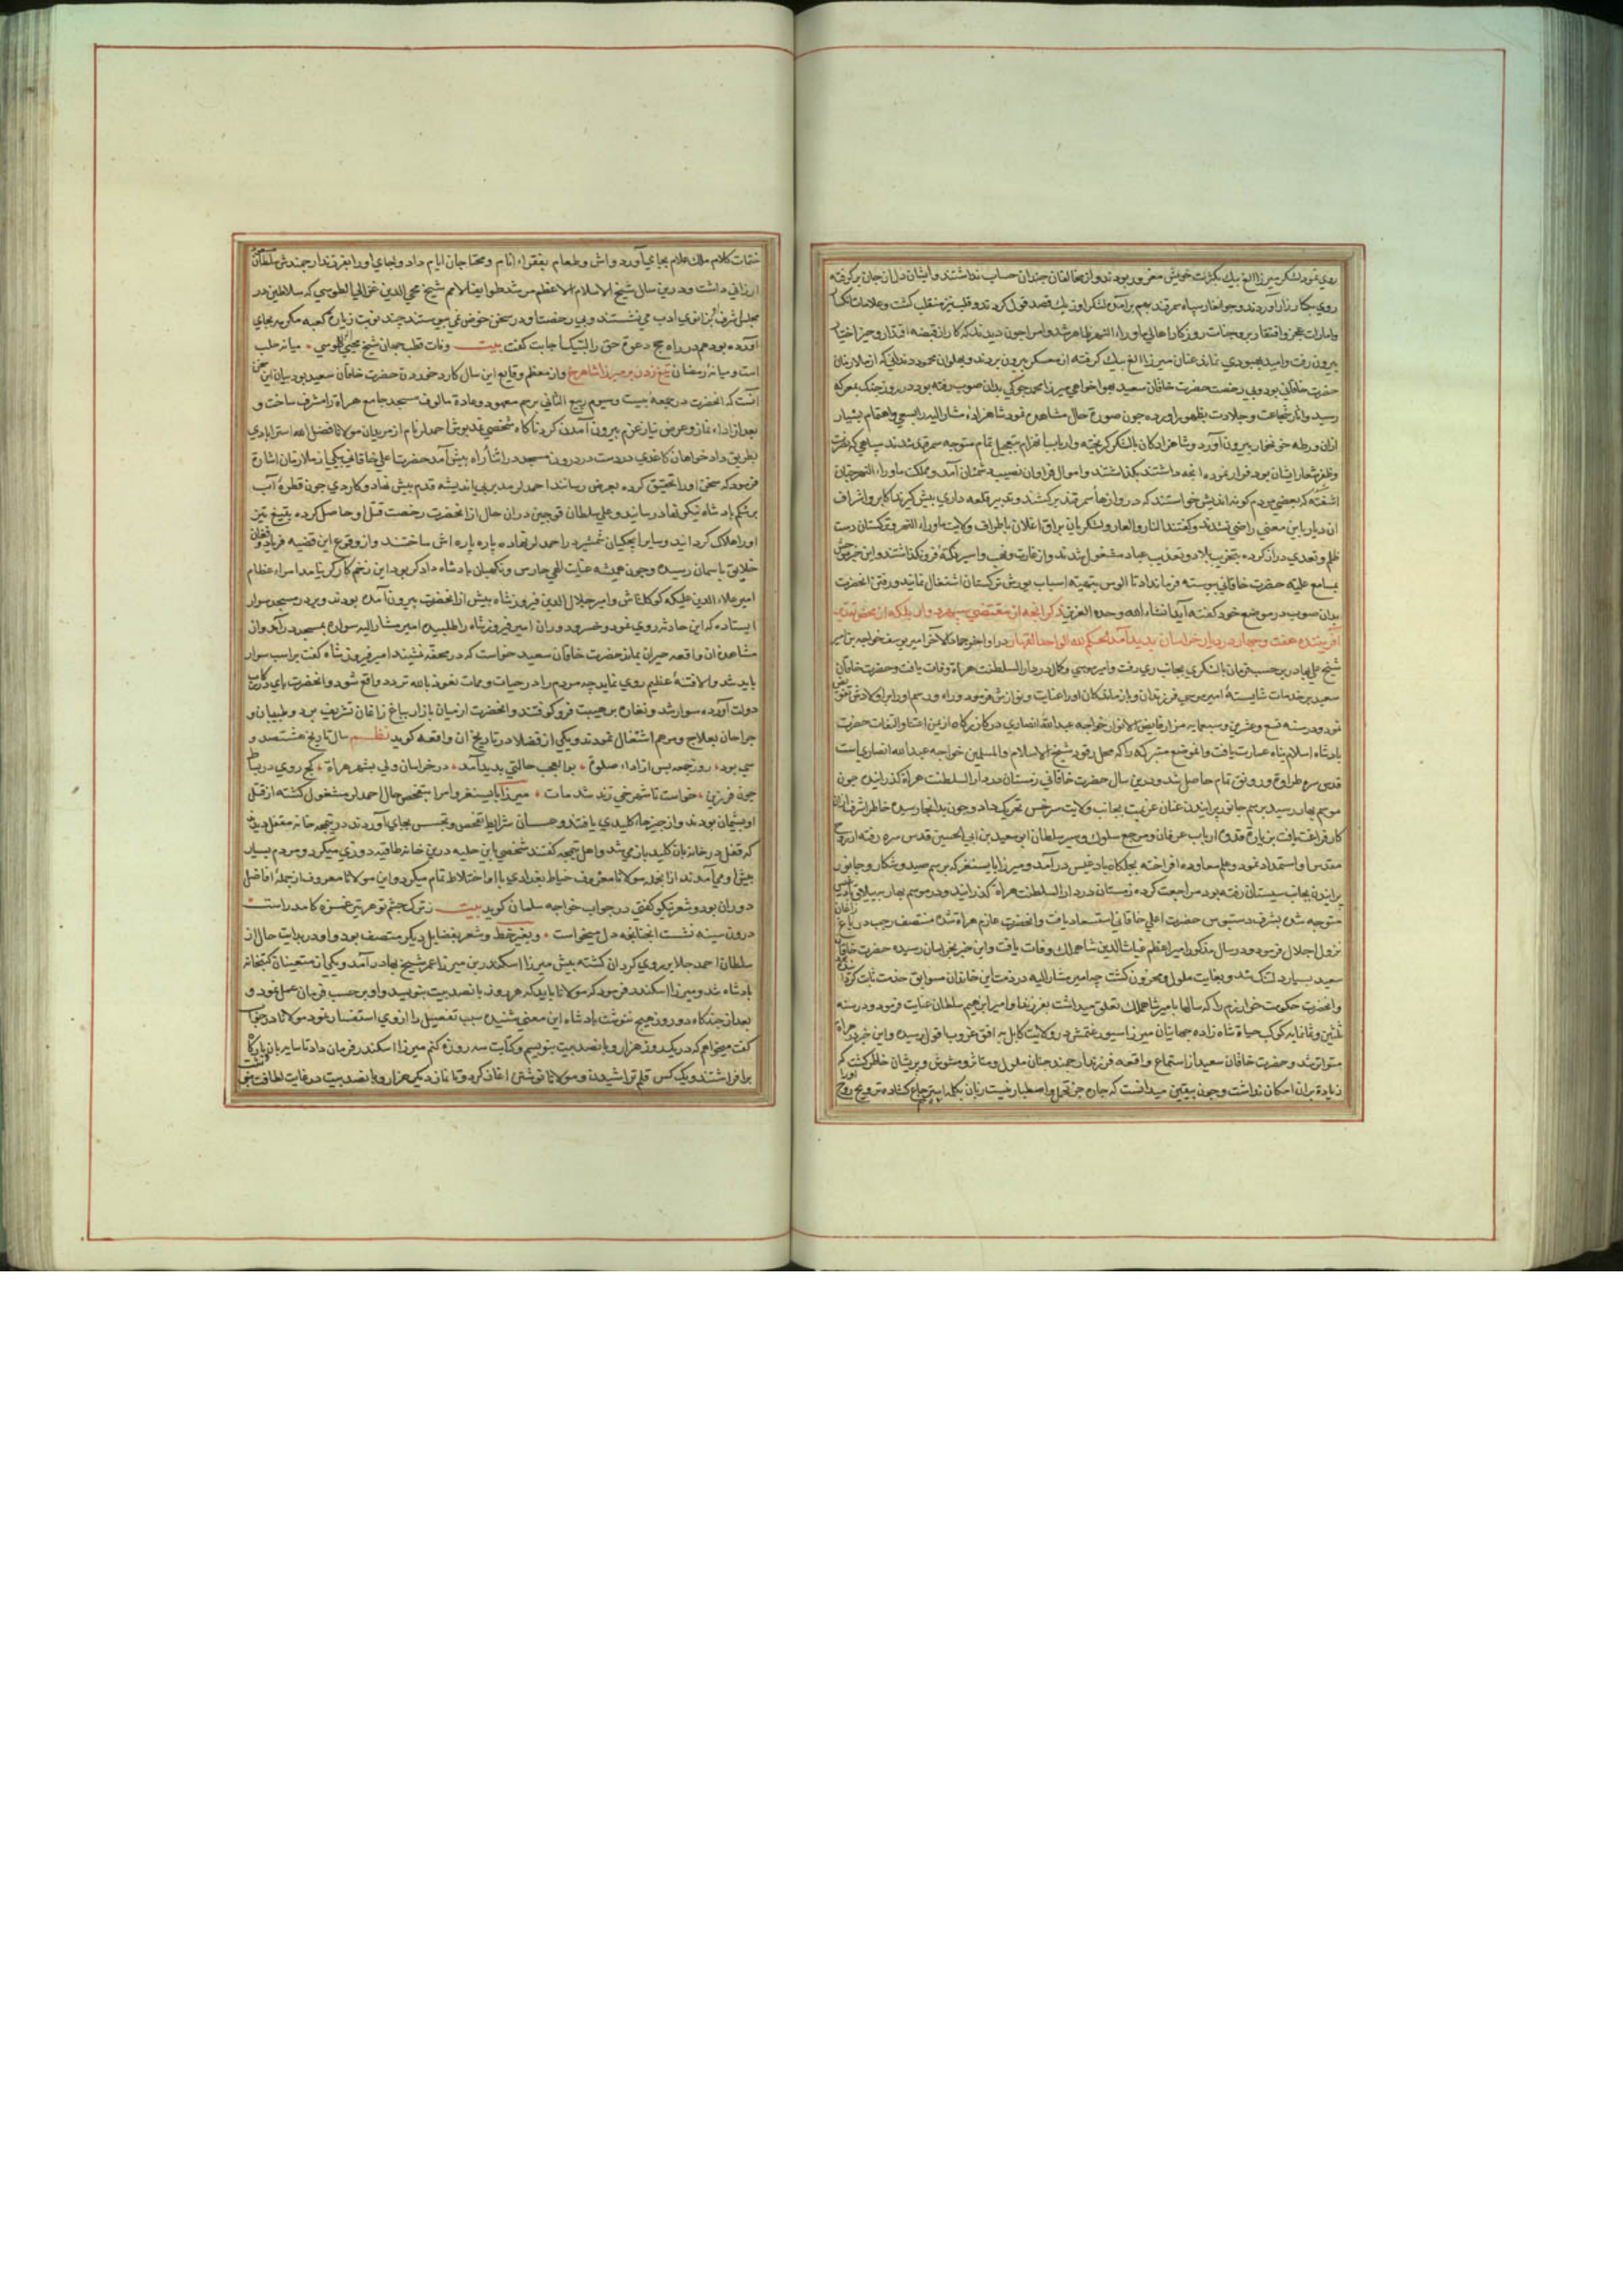 روي نمود لشكر ميرزا الغ بيك بكثرت خويش مغرور بودند و از مخالفان چندان حساب نداشتند و ايشان دل از جان بركرفته
روي بكارزار آوردند و جوانغار سپاه سمرقند بهم برآمده لشكر اوزبك قصد قول كردند و قلب نيز منقلب كشت و علامات
وامارات عجز و افتقار بر وجنات روزكار اهالي ماوراء النهر ظاهر شد و امرا چون ديدند كه كار از قبضه اقتدار و حيز اختيار
بيرون رفت و اميد بهبودي نماند عنان ميرزا الغ بيك كرفته از معسكر بيرون بردند و پهلوان محمود دندانى كه از ملازمان
حضرت خاقاني بود و بي رخصت حضرت خاقان سعيد بهواخواهي ميرزا محمد جوكي بدان صوب رفته بود در روز جنك بمعركه
رسيد و اثار شجاعت و جلادت بظهور اورده چون صورة حال مشاهده نمود شاهزاده مشار اليه را بسعي و اهتمام بسيار
ازان ورطه خونخوار بيرون آورد و شاهزادكان با لشكر كريخته و ارباب انهزام بتعجيل تمام متوجه سمرقند شدند سپاهي كه نصرت
وظفر شعار ايشان بود فرار نموده انچه داشتند بكذاشتند و اموال فراوان نصيب دشمنان آمد و مملكت ماوراء النهر چنان
اشفته كه بعضي مردم كوته انديش خواستند كه دروازهاء سمرقند بركشند و تدبير قلعه داري پيش كيرند اكابر و اشراف
ان ديار باين معني راضي نشدند و كفتند النار و العار و لشكريان براق اغلان باطراف ولايت ماوراء النهر و تركستان دست
ظلم و تعدي دراز كرده بتخريب بلاد و تعذيب عباد مشغول شدند و از غارت و نهب و اسير نكته فرونكذاشتند و اين خبر موحش
بمسامع عليه حضرت خاقاني پيوسته فرمان داد تا الوس بتهيه اسباب يورش تركستان اشتغال نمايند و رفتن انحضرت
بدان صوب در موضع خود كفته آيد انشاء الله وحده العزيز ذكر انچه از مقتضي سپهر دوار بلكه از محض تقدير
آفريننده هفت و چهار در ديار خراسان بديد آمد الحكم لله الواحد القهار در اواخر جمادي الآخر امير يوسف خواجه بن امير
شيخ علي بهادر بر حسب فرمان با لشكري بجانب ري رفت و امير موسي وكال در دار السلطنت هراة وفات يافت و حضرت خاقان
سعيد بر خدمات شايستۀ امير موسي فرزندان و بازماندكان اورا عنايت و نوازش فرمود و راه و رسم اورا بر اولادش تفويض
نمود و در سنه تسع و عشرين و سبعمايه مزار فايض الانوار خواجه عبد الله انصاري در كازركاه از يمن اعتنا و التفات حضرت
پادشاه اسلام پناه عمارت يافت و انموضع متبركه را كه محل رقود شيخ الاسلام و المسلمين خواجه عبد الله انصاري است
قدس سره طراوة و رونق تمام حاصل شد و درين سال حضرت خاقاني زمستان در دار السلطنت هراة كذرانيده چون
موسم بهار رسيد برسم جانور پرانيدن عنان عزيمت بجانب ولايت سرخس تحريك داد و چون بدانجا رسيد خاطر اشرف ازان
كار فراغت يافت بزيارة قدوه ارباب عرفان و مرجع سلوك و سير سلطان ابو سعيد بن ابي الحسين قدس سره رفته از روح
مقدس او استمداد نمود و علم معاوده افراخته بجلكاه بادغيس درآمد و ميرزا بايسنغر كه برسم صيد و شكار و جانور
پرانيدن بجانب سيستان رفته بود مراجعت كرده زمستان در دار السلطنت هراة كذرانيد و در موسم بهار بييلاق بادغيس
متوجه شده بشرف دستبوس حضرت اعلي خاقاني استسعاد يافت و انحضرت عازم هراة شده منتصف رجب در باغ زاغان
نزول اجلال فرمود و در سال مذكور امير اعظم غياث الدين شاهملك وفات يافت و اين خبر بخراسان رسيده حضرت خاقان
سعيد بسيار دلتنك شد و بغايت ملول و محزون كشت چه امير مشار اليه در ذمت اين خاندان سوابق خدمت ثابت كرده بود
وانحضرت حكومت خوارزم را كه سالها بامير شاهملك تعلق ميداشت بفرزند او امير ابرهيم سلطان عنايت فرمود و در سنه
ثلثين و ثمانمايه كوكب حياة شاه زاده جهانيان ميرزا سيورغتمش در ولايت كابل به افق غروب افول رسيد و اين خبر در هراة
متواتر شد و حضرت خاقان سعيد از استماع واقعه فرزند ارجمند چنان ملول و متاثر و مشوش و پريشان خاطر كشت كه
زيادة بران امكان نداشت و چون بيقين ميدانست كه چاره جز تحمل و اصطبار نيست زبان بكلمه استرجاع كشاده ترويح روح اورا
ختمات كلام ملك علام بجاي آورد و اش و طعام بفقراء انام و محتاجان ايام داد و بجاي اورا بفرزند ارجمندش سلطان
ارزاني داشت و درين سال شيخ الاسلام الاعظم مرشد طوايف الامم شيخ محي الدين غزالي الطوسي كه سلاطين در
مجلس شرف بزانوي ادب مي نشستند و بي رخصت او در سخن خوض نمي پيوستند چند نوبت زيارة كعبه مكرمه بجاي
آورده بود هم در راه حج دعوة حق را لبيك اجابت كفت بيت وفات قطب جهان شيخ محيي طوسي • ميانه حلب
است و ميانۀ رمضان تيغ زدن بر ميرزا شاهرخ و از معظم وقايع اين سال كارد خوردن حضرت خاقان سعيد بود بيان اين سخن
آنست كه انحضرت در جمعه بيست و سيوم ربيع الثاني برسم معهود و عادة مالوف مسجد جامع هراة را مشرف ساخت و
بعد از اداء نماز و عرض نياز عزم بيرون آمدن كرد ناكاه شخصي نمدپوش احمد لر نام از مريدان مولانا فضل الله استرابادي
بطريق داد خواهان كاغذي در دست در درون مسجد در اثناء راه پيش آمد حضرت اعلي خاقاني بيكي از ملازمان اشارة
فرمود كه سخن اورا تحقيق كرده بعرض رساند احمد لر مدبر بي انديشه قدم پيش نهاد و كاردي چون قطرۀ آب
بر شكم پادشاه نيكو نهاد رسانيد و علي سلطان قوچين دران حال از انحضرت رخصت قتل او حاصل كرده بتيغ تيز
اورا هلاك كردانيد و ساير ايچكيان شمشير در احمد لر نهاده پاره پاره اش ساختند و از وقوع اين قضيه فرياد و فغان
خلايق باسمان رسيد و چون هميشه عنايت الهي حارس و نكهبان پادشاه دادكر بود اين زخم كاركر نيامد امراء عظام
امير علاء الدين عليكه كوكلتاش و امير جلال الدين فيروزشاه پيش از انحضرت بيرون آمده بودند و بر در مسجد سوار
ايستاده كه اين حادثه روي نمود و خسرو دوران امير فيروزشاه را طلبيده امير مشار اليه سواره بمسجد درآمد و از
مشاهده ان واقعه حيران بماند حضرت خاقان سعيد خواست كه در محفه نشيند امير فيروز شاه كفت بر اسب سوار
بايد شد والا فتنۀ عظيم روي نمايد چه مردم را در حيات و ممات نعوذ بالله تردد واقع شود و انحضرت پاي در ركاب
دولت آورده سوار شد و نقاره بر هيبت فروكوفتند و انحضرت از ميان بازار بباغ زاغان تشريف برد و طبيبان و
جراحان بعلاج و مرهم اشتغال نمودند و يكي از فضلا در تاريخ ان واقعه كويد نظم سال تاريخ هشتصد و
سي بود • روز جمعه پس از اداء صلوة • بو العجب حالتي بديد آمد • در خراسان ولي بشهر هراة • كج روي در بساط
چون فرزين • خواست تا شهرخي زند شد مات • ميرزا بايسنغر و امرا بتفحص حال احمد لر مشغول كشته از قتل
او پشيمان بودند و از جيب جامه كليدي يافتند و همان شرايط تفحص و تجسس بجاي آوردند در تيمچه خانه مقفل ديدند
كه قفل در خانه بان كليد باز مي شد و اهل تيمچه كفتند شخصي باين حليه درين خانه طاقيه دوزي ميكرد و مردم بسيار
پيش او مي آمدند از انجمله مولانا معروف خطاط بغدادي با او اختلاط تمام ميكرد و اين مولانا معروف از جمله افاضل
دوران بود و شعر نيكو كفتي در جواب خواجه سلمان كويد بيت ز ترك چشم تو هر تير غمزه كامد راست
درون سينه نشست انچنانچه دل ميخواست • و بغير خط و شعر بفضايل ديكر متصف بود و او در بدايت حال از
سلطان احمد جلاير روي كردان كشته پيش ميرزا اسكندر بن ميرزا عمر شيخ بهادر آمد و يكي از متعينان كتبخانه
پادشاه شد و ميرزا اسكندر فرمود كه مولانا بايد كه هر روز پانصد بيت بنويسد و او بر حسب فرمان عمل نمود و
بعد از چندكاه دو روز هيچ ننوشت پادشاه اين معني شنيده سبب تفصيل را از وي استفسار نمود مولانا در جواب
كفت ميخواهم كه در يكروز هزار و پانصد بيت بنويسم و كتابت سه روزه كنم ميرزا اسكندر فرمان داد تا سايبان و باركاه
برافراشتند و يك كس قلم تراشيدن و مولانا نوشتن اغاز كرد و تا نماز ديكر هزار و پانصد بيت در غايت لطافت بنوشت